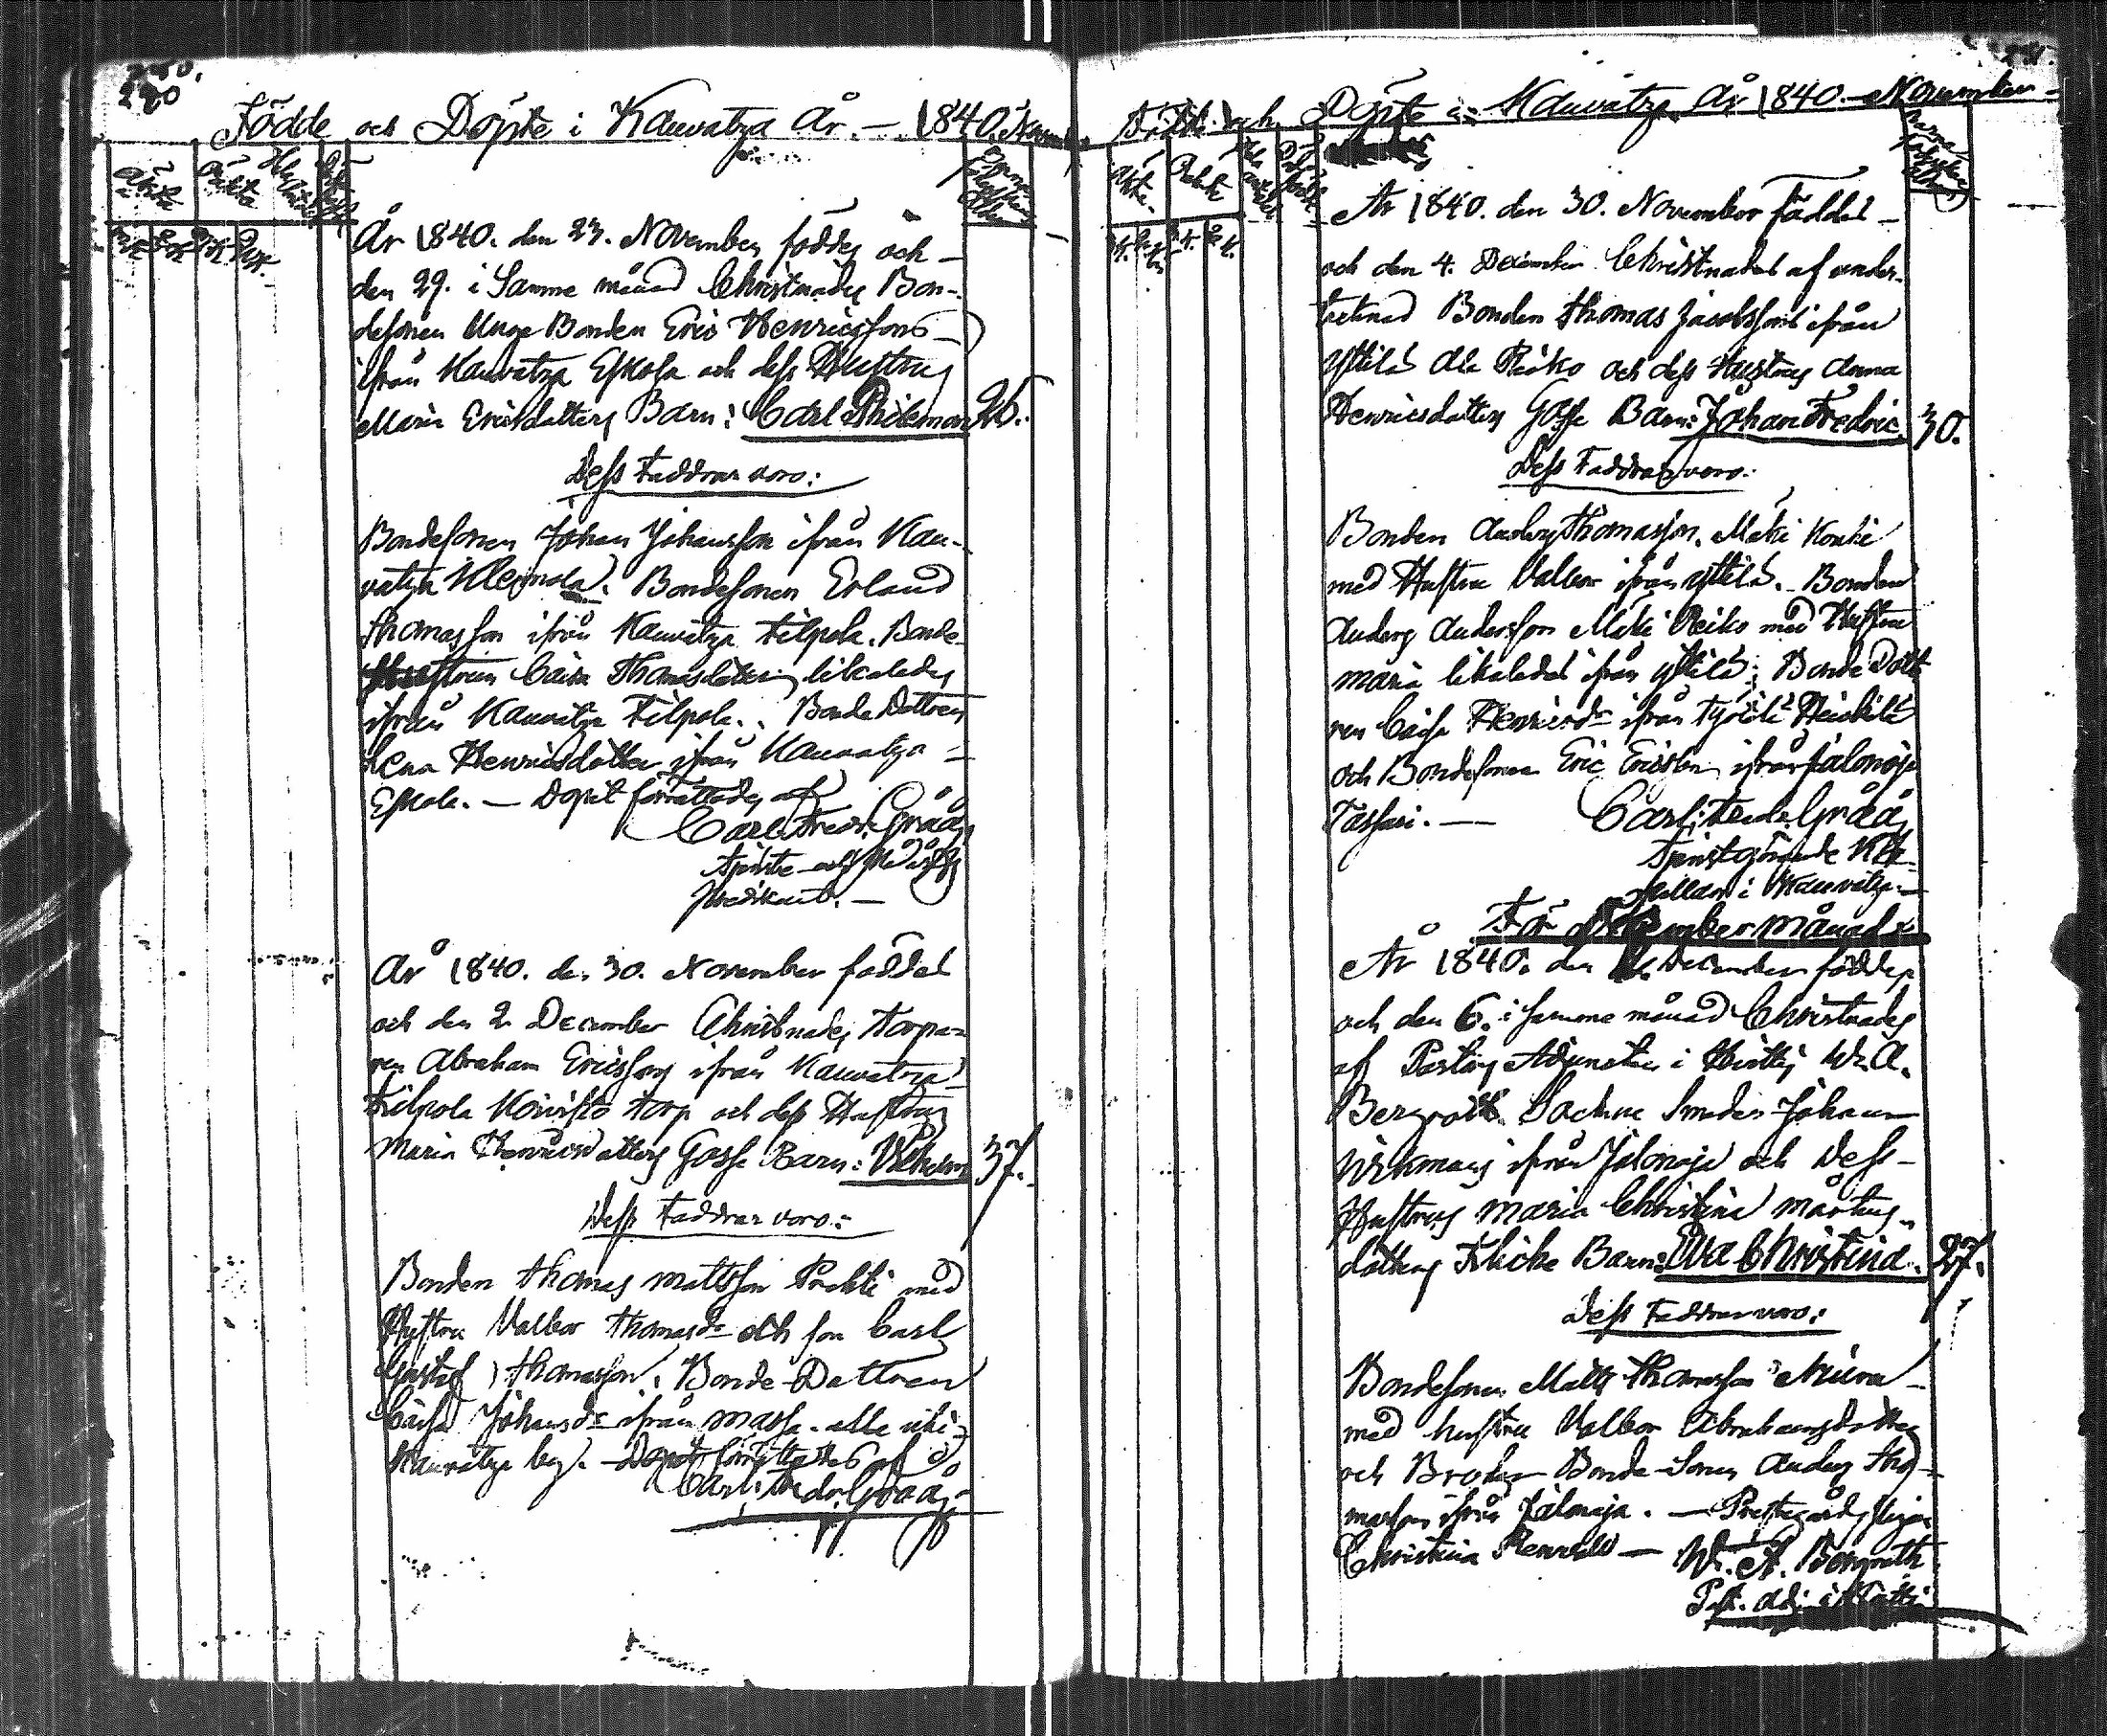 290
Födde och Döpte i Kauvatza År. – 1840. November
Äkta
Oäkta
År 1840. den 23. November föddes och
den 29. i Samme månad Christnades Bon-
desonen Unge Bonden Eric Henricssons
ifrån Kauvatza Eskola och dess Hustrus
Maria Ericsdotters Barn: Carl Philemon 26.
Dess Faddrar voro:
Bondesonen Johan Johansson ifrån Kau-
vatza Klemola. Bondesonen Erland
Thomasson ifrån Kauvatza Filpola. Bonde-
hustrun Caisa Thomasdotter likaledes
ifrån Kauvatza Filpola. Bonde Dottren
Lena Henricsdotter ifrån Kauvatza
Eskola. — Dopet förrättades af
Carl Fredr. Gråå,
Predikant. —
År 1840. den 30. November föddes
och den 2. December Christnades Torpa-
ren Abraham Ericssons ifrån Kauvatza
Filpola Koivisto torp och dess Hustrus
Maria Henricsdotters Gosse Barn: Vilhelm 37.
Dess Faddrar voro:
Bonden Thomas Mattsson Prakti med
Hustru Valbor Thomasdr och son Carl
Gustaf Thomasson. Bonde-Dottren
Caisa Johansdr ifrån Massa. alla uti
Kauvatza by. – Dopet förrättades af
Carl Fredr. Gråå.
291.
Födde och Döpte i Kauvatza År 1840. – November
Äkta
Oäkta
År 1840. den 30. November föddes
och den 4. December Christnades af under-
tecknad Bonden Thomas Jacobssons ifrån
Yttilä Ala Reiko och dess Hustrus Anna
Henricsdotters Gosse Barn: Johan Fredric. 30.
Dess Faddrar voro:
Bonden Anders Thomasson. Mäki Konki
med Hustru Valbor ifrån Yttilä. Bonden
Anders Andersson Mäki Reiko med Hustru
Maria likaledes ifrån Yttilä; Bonde Dott-
ren Caisa Henricsdr ifrån
och Bondesonen Eric Ericsson ifrån Jalonoja
Tassari. — Carl Fredr Gråå,
Tjenstgörande Ka-
pellan i Kauvatza.
För December Månad
År 1840. den December föddes
och den 6. i samme månad Christnades
af Pastors Adjuncten i Hvittis W. A.
Bergroth Sockne Smeden Johan
Wikmans ifrån Jalonoja och Dess
Hustrus Maria Christina Mårtens-
dotters Flicke Barn: Eva Christina. 27.
Dess Faddrar voro:
Bondesonen Matts Thomasson
med hustru Valbor Abrahamsdotter
och Broder Bonde-Sonen Anders Tho-
masson ifrån Jalonoja. — Prestegårds Pigan
Christina — W. A. Bergroth
Past. Adj. i Hvittis